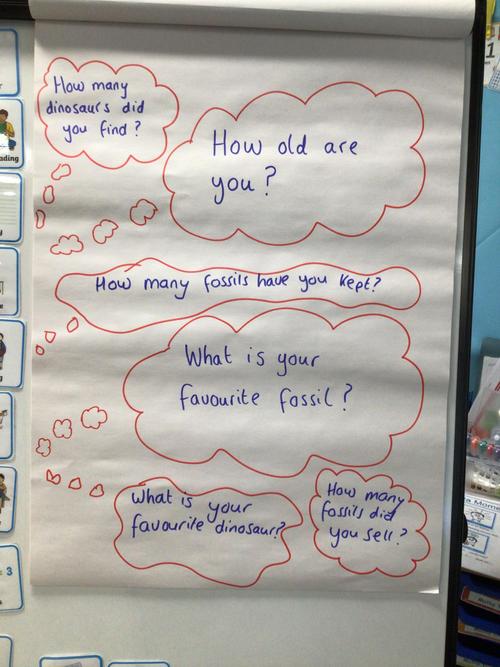 How many
dinosaurs did
you find?
How old are
you?
How many fossils have you kept?
What is your
favourite fossil?
What is your
favourite dinosaur?
How many
fossils did
you sell?
ading
= 3
1